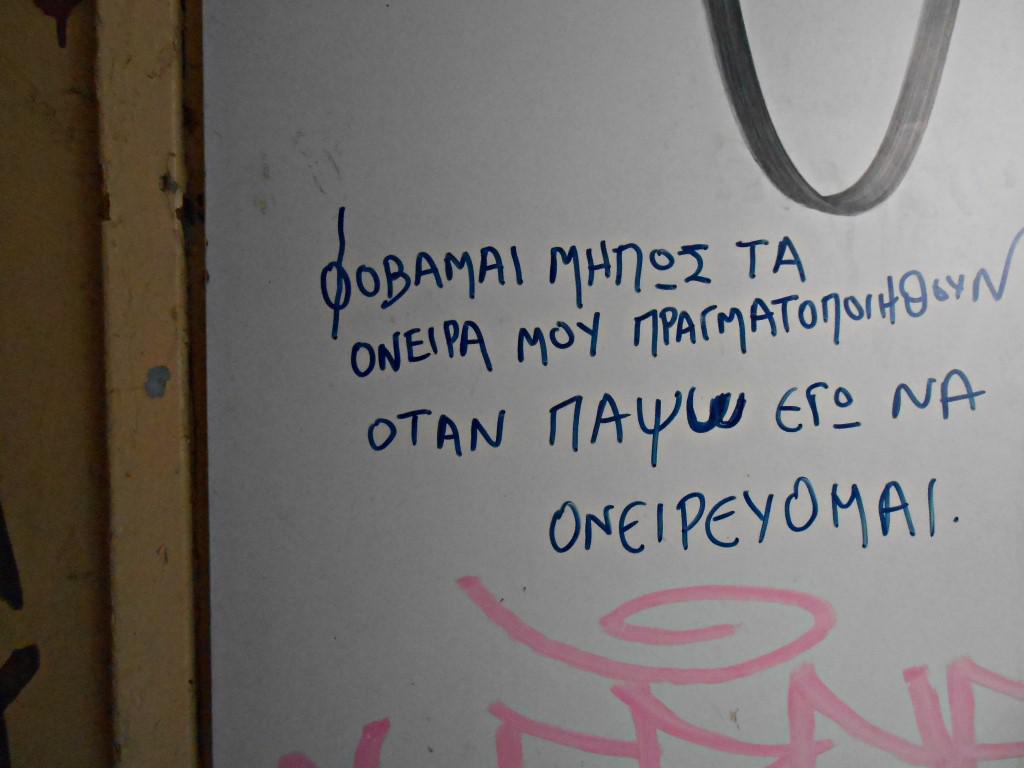 ΦΟΒΑΜΑΙ ΜΗΠΩΣ ΤΑ
ΟΝΕΙΡΑ ΜΟΥ ΠΡΑΓΜΑΤΟΠΟΙΗΘΟΥΝ
ΟΤΑΝ ΠΑΨΩ ΕΓΩ ΝΑ
ΟΝΕΙΡΕΥΟΜΑΙ.